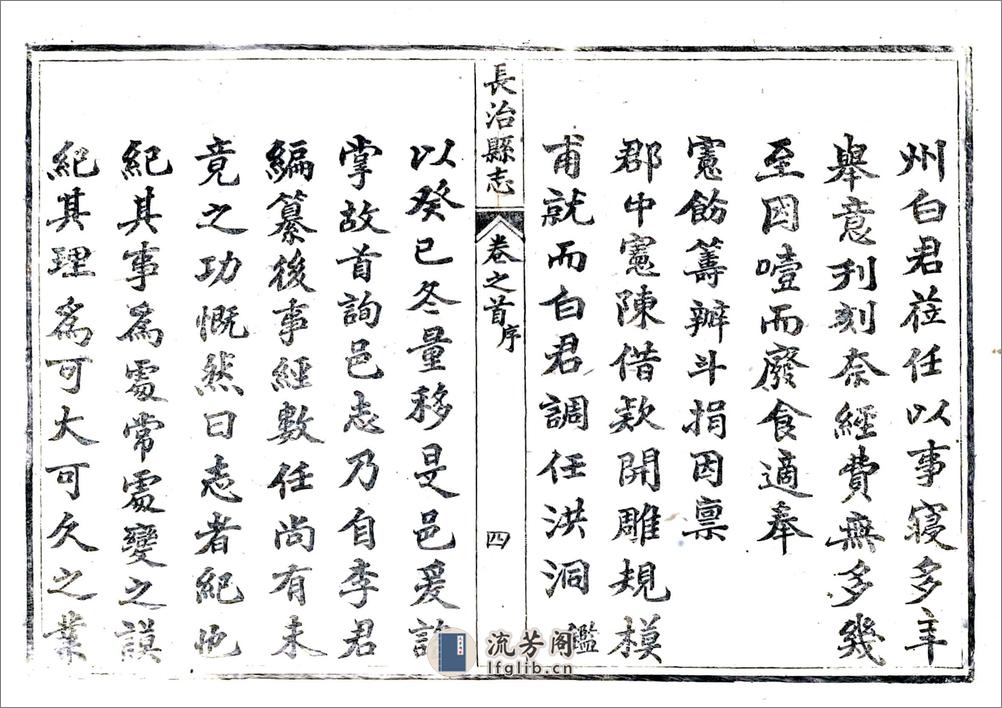 州白君莅任以事寢多年
舉意刋刻奈經費無多幾
至因噎而廢食適奉
憲飭籌辦斗捐因禀
郡中憲陳借欵開雕規模
甫就而白君調任洪洞鑑
長治縣志 卷之首 序 四
以癸巳冬量移是邑爰訪
掌故首詢邑志乃自李君
編纂後事經數任尚有未
竟之功慨然曰志者紀也
紀其事爲處常處變之謨
紀其理爲可大可久之業
流芳阁
lfglib.cn